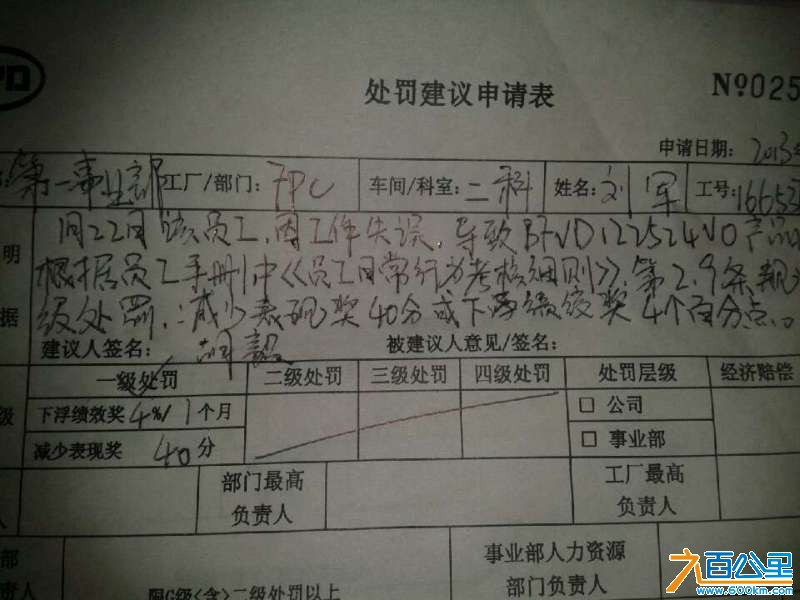 YD
处罚建议申请表
№025
申请日期: 2013年
第一事业部 工厂/部门: FPC 车间/科室: 二科 姓名: 刘军 工号: 16653
明 1月22日该员工,因工作失误,导致BFVD122524V0产品
根据员工手册中《员工日常行为考核细则》第2.9条规
据 级处罚,减少表现奖40分或下浮绩效奖4个百分点。
建议人签名: 胡毅 被建议人意见/签名:
一级处罚 二级处罚 三级处罚 四级处罚 处罚层级 经济赔偿
级 下浮绩效奖4%/1个月 □ 公司
减少表现奖 40分 □ 事业部
部门最高 工厂最高
人 负责人 负责人
部 事业部人力资源
人 限G级(含)二级处罚以上 部门负责人
九百公里
www.900km.com